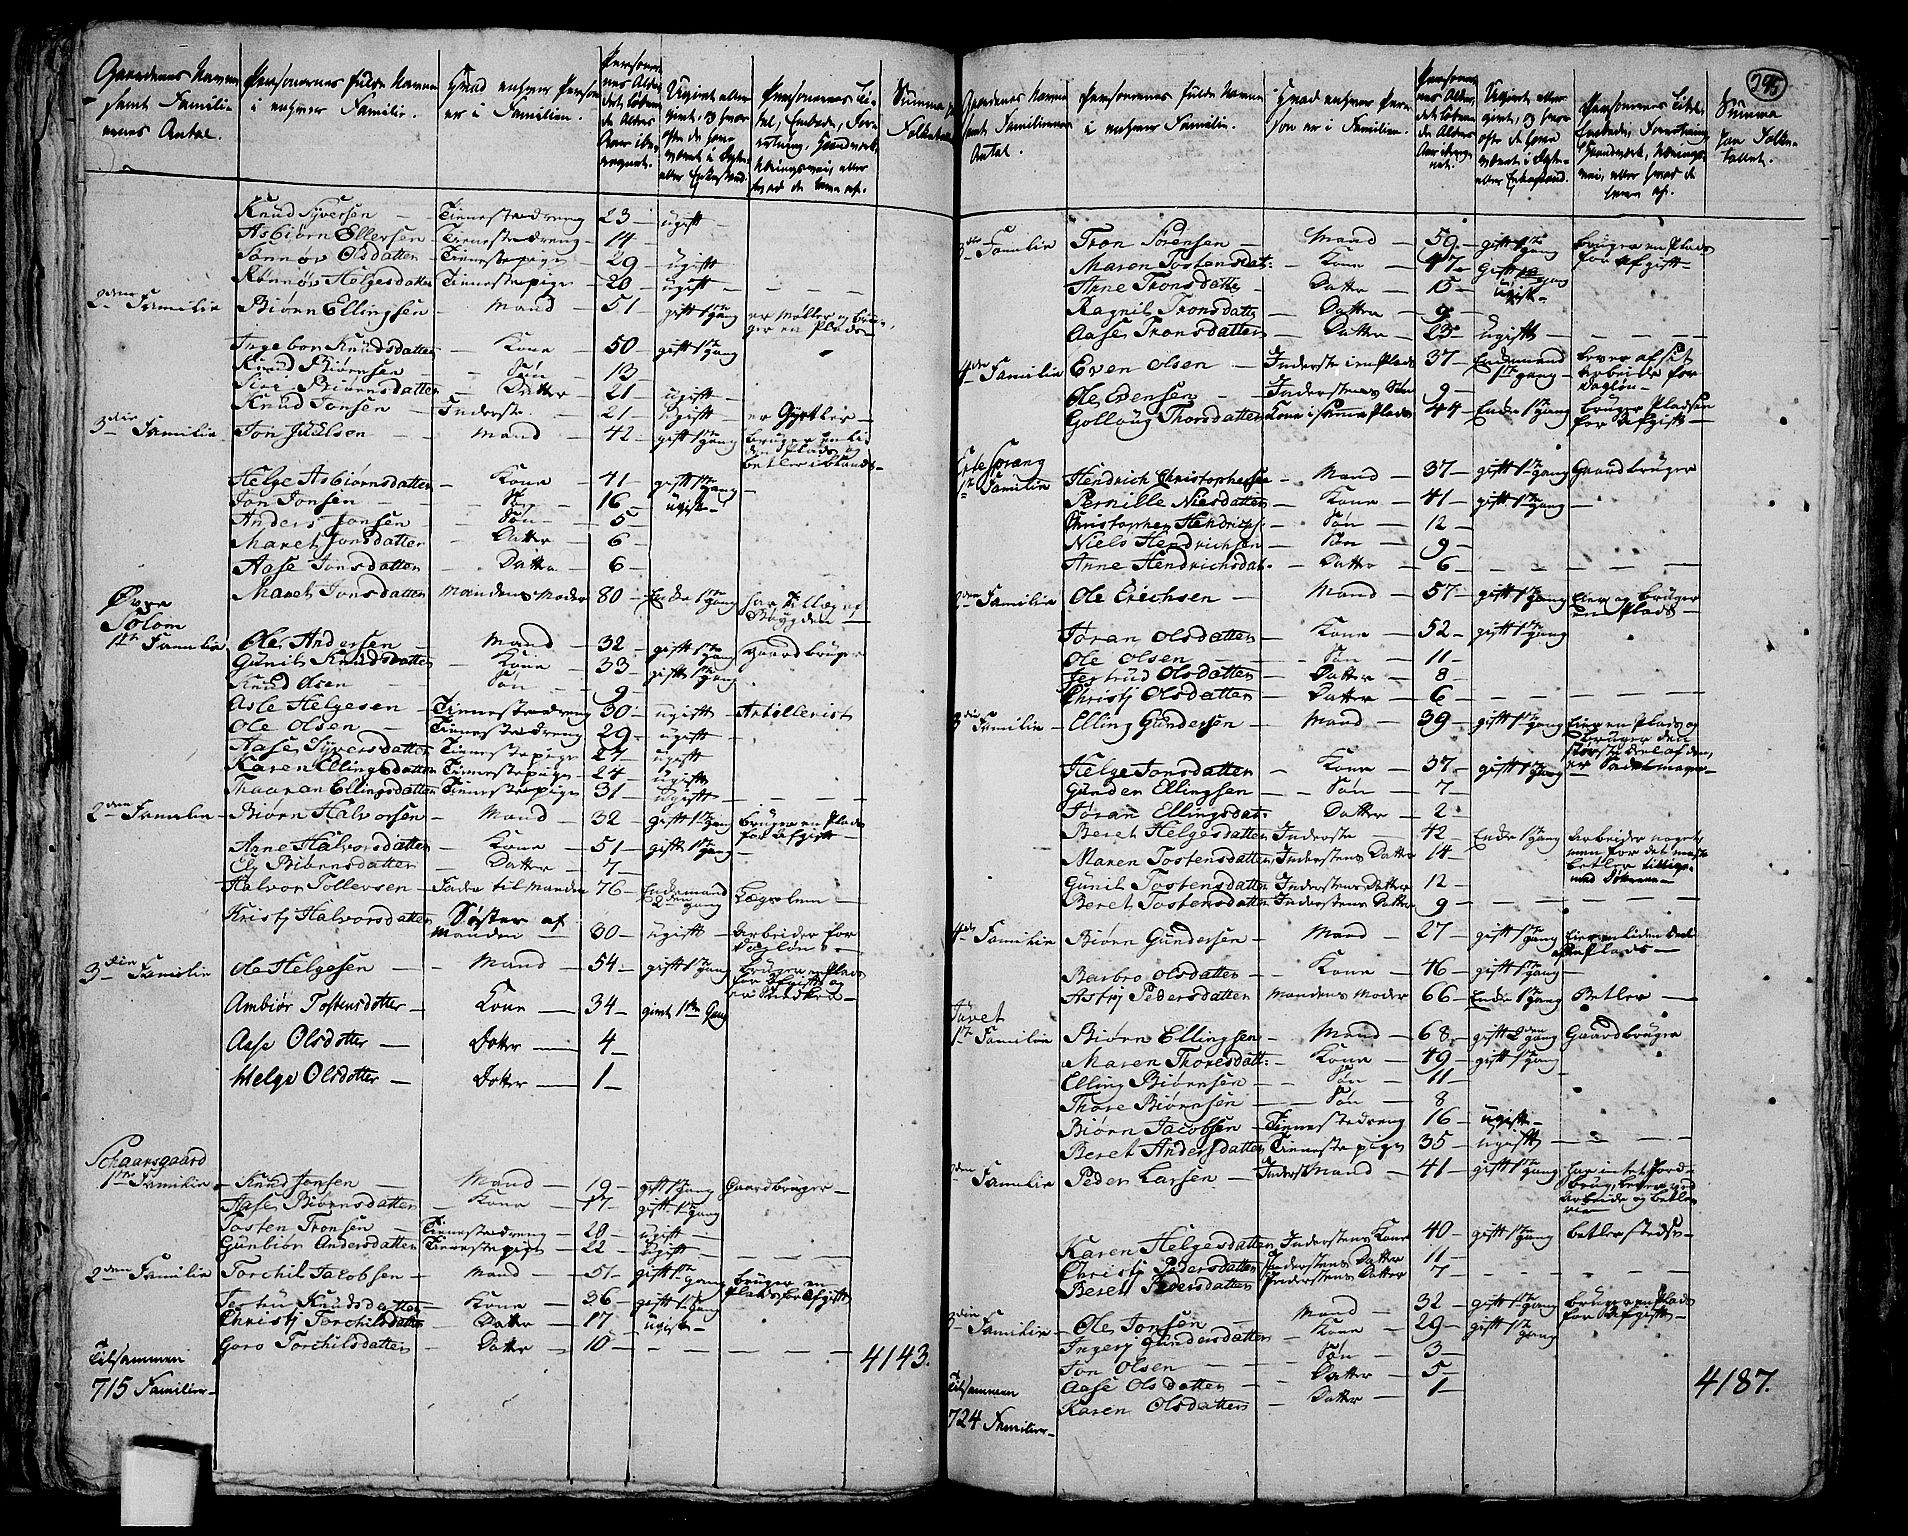 Gaardenes Navne samt Familiernes Antal.
Personernes fulde Navne i enhver Familie.
Hvad enhver Person er i Familien.
Personernes Alder det løbende Alders Aar iberegnet.
Ugivt eller givt, og hvor ofte de have været i Ægte eller Enkestand.
Personernes Titel, Embede, Forretning, Haandverk, Næringsvei, eller hvad de leve af.
Summa Folketallet
Knud Syversen — Tienestedreng 23 — ugift —
Asbiørn Ellersen — Tienestedreng — 14 —
Olsdatter — Tienestepige 29 — ugift
Rønnøv Helgesdatter Tienestepige — 20 — ugift —
2den Familie Biørn Ellingsen — Mand — 51 — gift 1te Gang er Møller og bruger en Plads —
Ingebor Knudsdatter — Kone — 50 — gift 1te Gang
Knud Biørnsen — Søn — 13 —
Biørnsdatter — Datter — 21 — ugift —
Knud Jonsen — Inderste — 21 — ugift — er Gjørtler —
3die Familie Jon Juulsen — Mand — 42 — gift 1te Gang bruger en liden Plads og betler iblandt —
Helge Asbiørnsdatter — Kone — 41 — gift 1te Gang
Jon Jonsen — Søn — 16 — ugift —
Anders Jonsen — Søn — 5 —
Maret Jonsdatter — Datter — 6 —
Aase Jonsdatter — Datter — 6 —
Maret Jonsdatter Mandens Moder 80 — Enke 1te Gang har Tillæg af Bøygden —
Øvre Solom
1te Familie Ole Andersen — Mand — 32 — gift 1te Gang Gaardbruger
Gunil Knudsdatter — Kone — 33 — gift 1te Gang
Knud Olsen — Søn — 9 —
Asle Helgesen — Tienestedreng 30 — ugift — Artillerist
Ole Olsen — Tienestedreng 29 — ugift —
Aase Syversdatter Tienestepige 27 — ugift
Karen Ellingsdatter Tienestepige — 24 — ugift
Thaaran Ellingsdatter Tienestepige 31 — ugift —
2den Familie — Biørn Halvorsen — Mand — 32 — gift 1te Gang bruger en Plads for Afgift —
Anne Halvorsdatter — Kone — 51 — gift 1te Gang —
Biørnsdatter — Datter — 7 —
Halvor Tollevsen — Fader til Manden 76 — Enkemand 2den Gang Lægslem —
Kristj Halvorsdatter Søster af Manden — 30 — ugift — Arbeider for Dagløn —
3die Familie Ole Helgesen — Mand — 54 — gift 1te Gang bruger en Plads for Afgift og er
Ambiør Tostensdotter — Kone — 34 — givt 1te Gang
Aase Olsdotter — Dotter — 4 —
Helge Olsdotter — Dotter — 1 —
Schaarsgaard
1te Familie — Knud Jonsen — Mand — 19 — gift 1te Gang Gaardbruger —
Aase Biørnsdatter — Kone — 17 — gift 1te Gang
Tosten Tronsen — Tienestedreng — 20 — ugift —
Gunbiør Andersdatter Tienestepige — 22 — ugift —
2den Familie Torchil Jacobsen — Mand — 51 — gift 1te Gang bruger en Plads for Afgift
Knudsdatter — Kone — 26 — gift 1te Gang
Christj Torchilsdatter — Datter — 17 — ugift —
Goro Torchilsdatter — Datter — 10 —
Tilsammen
715 Familier — 4143.
245
Gaardenes Navne samt Familiernes Antal.
Personernes fulde Navne i enhver Familie.
Hvad enhver Person er i Familien.
Personernes Alder, det løbende Alders Aar iberegnet.
Ugivt eller givt, og hvor ofte de have været i Ægte eller Enkestand.
Personernes Titel, Embede, Forretning, Haandverk, Næringsvei, eller hvad de leve af.
Summa paa Folketallet.
3die Familie Tron Sørensen — Mand — 59 — gift 1te Gang bruger en Plads for Afgift —
Maren Tostensdat: — Kone — 47 — Gift 1te Gang
Anne Tronsdatter — Datter — 15 — ugift —
Ragnil Tronsdatter — Datter — 9 —
Aase Tronsdatter — Datter — 23 — ugift —
4de Familie Even Olsen — Inderste i en Plads 37 — Enkemand 1te Gang — lever af sit Arbeide for Dagløn —
Ole Evensen — Inderstens Søn 9 —
Golloug Thorsdatter Kone i samme Plads 44 — Enke 1te Gang bruger Pladsen for Afgift —
Sprang
1te Familie Hendrich Christophersen — Mand — 37 — gift 1te Gang Gaardbruger
Pernille Nielsdatter — Kone — 41 — gift 1te Gang —
Christopher Hendrichs: — Søn — 12 —
Niels Hendrichsen — Søn — 9 —
Anne Hendrichsdat: — Datter — 6 —
2den Familie Ole Erichsen — Mand — 57 — gift 1te Gang Eier og bruger en Plads —
Jøran Olsdatter — Kone — 52 — gift 1te Gang
Ole Olsen — Søn — 11 —
Jertrud Olsdatter — Datter — 8 —
Christj Olsdatter — Datter — 6 —
3die Familie — Elling Gundersen — Mand — 39 — gift 1te Gang Eier en Plads og bruger den største Deel af den, er Sadelmager —
Helge Jonsdatter — Kone — 37 — gift 1te Gang —
Gunder Ellingsen — Søn — 7 —
Jøran Ellingsdat: — Datter — 2 —
Beret Helgesdatter Inderste — 42 — Enke 1te Gang Arbeider noget, men for det meste betler tillige med Døttrene —
Maren Tostensdatter Inderstens Datter 14 —
Gunil Tostensdatter Inderstens Datter 12 —
Beret Tostensdatter Inderstens Datter 9 —
4de Familie Biørn Gundersen — Mand — 27 — gift 1te Gang Eier en liden Deel af en Plads —
Barbro Olsdatter — Kone — 46 — gift 1te Gang —
Astrj Pedersdatter Mandens Moder 66 — Enke 1te Gang Betler —
Juvet
1te Familie Biørn Ellingsen — Mand — 68 — gift 2den Gang Gaardbruger
Maren Thoresdatt: — Kone — 49 — gift 1te Gang —
Elling Biørnsen — Søn — 11 —
Thore Biørnsen — Søn — 8
Biørn Jacobsen — Tienestedreng 16 — ugift —
Beret Andersdatter Tienestepige 35 — ugift —
2den Familie Peder Larsen — Inderst Mand — 41 — gift 1te Gang har intet Jordbrug, lever ved Arbeide og betlerie
Karen Helgesdatter Inderstens Kone 40 — gift 1te Gang betler stedse —
Christj Pedersdatter Inderstens Datter 11 —
Beret Pedersdatter Inderstens Datter 7 —
3die Familie — Ole Jonsen — Mand — 32 — gift 1te Gang bruger en Plads for Afgift —
Ingerj Gundersdatter — Kone — 29 — gift 1te Gang
Jon Olsen — Søn — 3 —
Aase Olsdatter — Datter — 5 —
Karen Olsdatter — Datter — 1 —
Tilsammen
724 Familier — 4187.